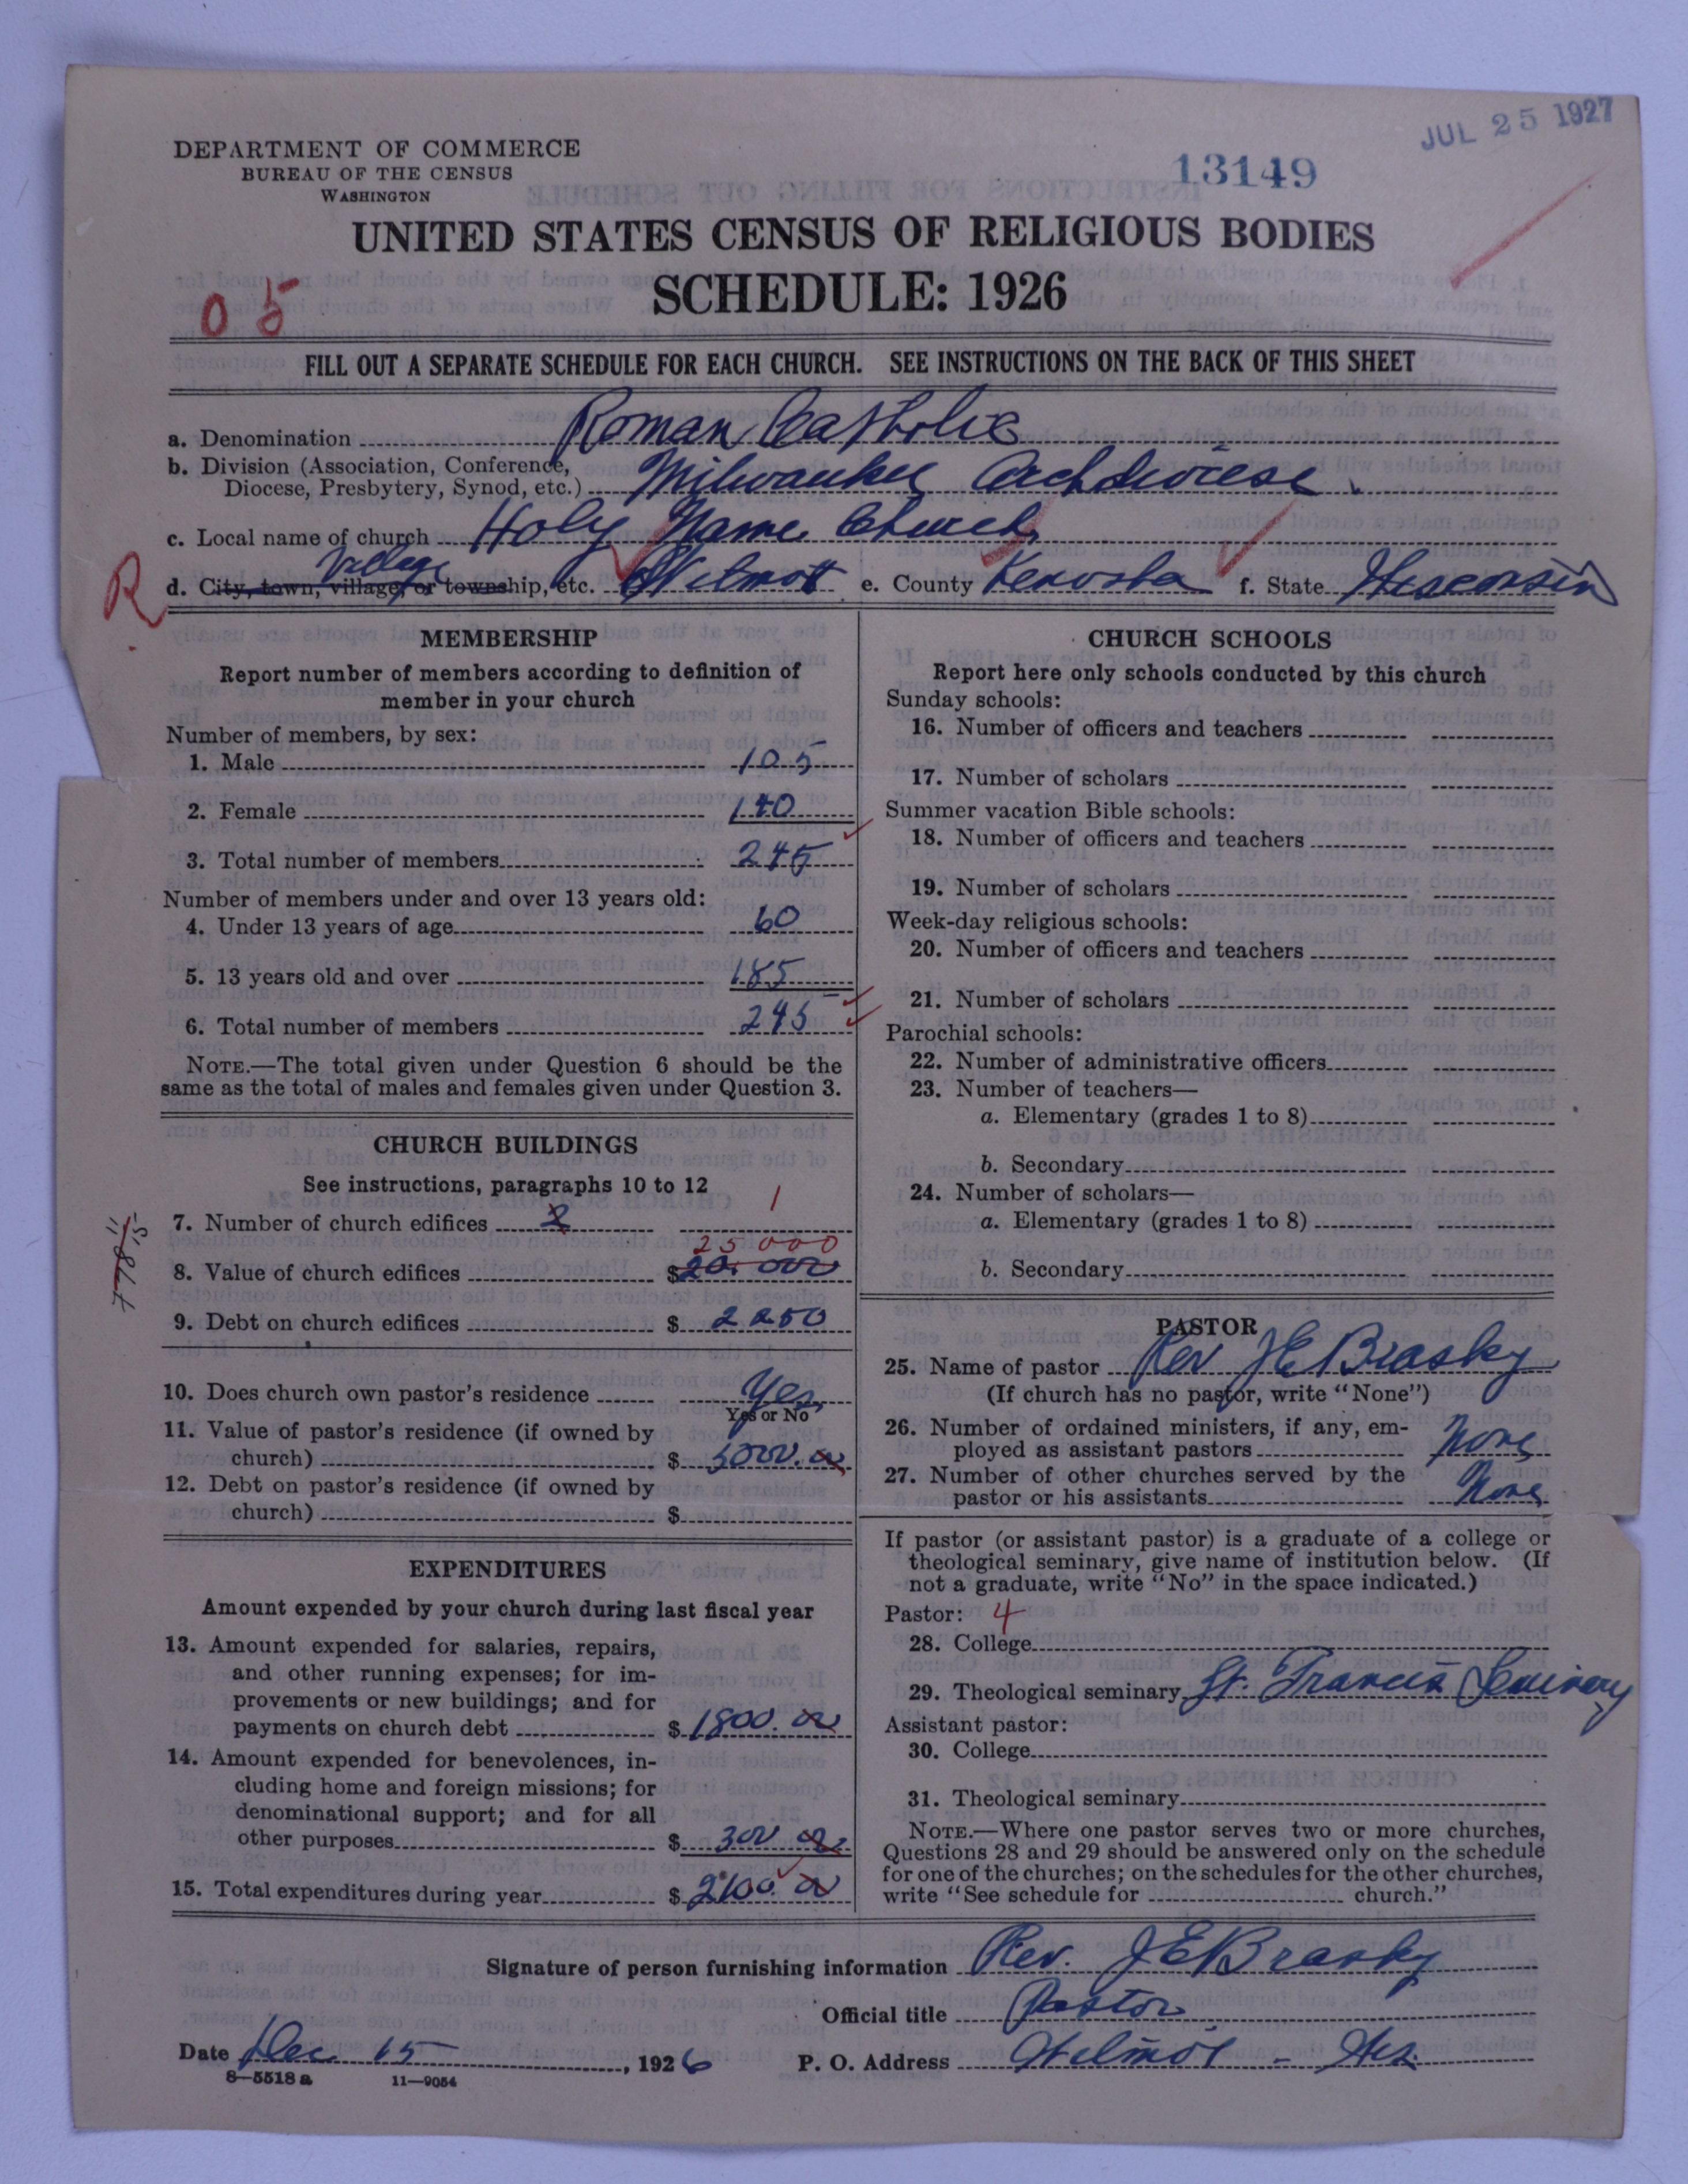 JUL 25 1927
DEPARTMENT OF COMMERCE
BUREAU OF THE CENSUS
WASHINGTON
13149
UNITED STATES CENSUS OF RELIGIOUS BODIES
SCHEDULE: 1926
05
FILL OUT A SEPARATE SCHEDULE FOR EACH CHURCH. SEE INSTRUCTIONS ON THE BACK OF THIS SHEET
a. Denomination Roman Catholic
b. Division (Association, Conference, Diocese, Presbytery, Synod, etc.) Milwaukee Archdiocese
c. Local name of church Holy Name Church
R
Village
d. City, town, village, or township, etc. Wilmot e. County Kenosha f. State Wisconsin
MEMBERSHIP
Report number of members according to definition of
member in your church
Number of members, by sex:
1. Male 105
2. Female 140
3. Total number of members 245
Number of members under and over 13 years old:
4. Under 13 years of age 60
5. 13 years old and over 185
6. Total number of members 245
NOTE.—The total given under Question 6 should be the
same as the total of males and females given under Question 3.
CHURCH BUILDINGS
See instructions, paragraphs 10 to 12
7. Number of church edifices 2 1
25000
8. Value of church edifices $20.000
9. Debt on church edifices $ 2250
10. Does church own pastor's residence Yes
Yes or No
11. Value of pastor's residence (if owned by
church) $ 5000.00
12. Debt on pastor's residence (if owned by
church) $
EXPENDITURES
Amount expended by your church during last fiscal year
13. Amount expended for salaries, repairs,
and other running expenses; for im-
provements or new buildings; and for
payments on church debt $ 1800.00
14. Amount expended for benevolences, in-
cluding home and foreign missions; for
denominational support; and for all
other purposes $ 300 00
15. Total expenditures during year $ 2100.00
CHURCH SCHOOLS
Report here only schools conducted by this church
Sunday schools:
16. Number of officers and teachers
17. Number of scholars
Summer vacation Bible schools:
18. Number of officers and teachers
19. Number of scholars
Week-day religious schools:
20. Number of officers and teachers
21. Number of scholars
Parochial schools:
22. Number of administrative officers
23. Number of teachers—
a. Elementary (grades 1 to 8)
b. Secondary
24. Number of scholars—
a. Elementary (grades 1 to 8)
b. Secondary
PASTOR
25. Name of pastor Rev J E Brasky
(If church has no pastor, write "None")
26. Number of ordained ministers, if any, em-
ployed as assistant pastors None
27. Number of other churches served by the
pastor or his assistants None
If pastor (or assistant pastor) is a graduate of a college or
theological seminary, give name of institution below. (If
not a graduate, write "No" in the space indicated.)
Pastor: 4
28. College
29. Theological seminary St. Francis Seminary
Assistant pastor:
30. College
31. Theological seminary
NOTE.—Where one pastor serves two or more churches,
Questions 28 and 29 should be answered only on the schedule
for one of the churches; on the schedules for the other churches,
write "See schedule for church."
Signature of person furnishing information Rev. J E Brasky
Official title Pastor
Date Dec 15, 1926 P. O. Address Wilmot - Wis.
8—5518 a 11—9054